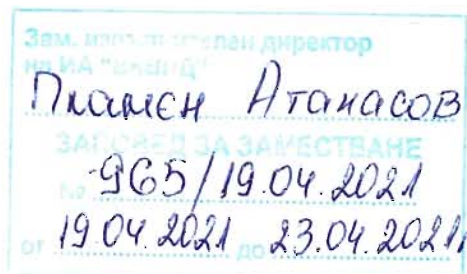 Зам. изпълнителен директор
на ИА
Пламен Атанасов
ЗАПОВЕД ЗА ЗАМЕСТВАНЕ
№ 965/19.04.2021
от 19.04.2021 до 23.04.2021г.